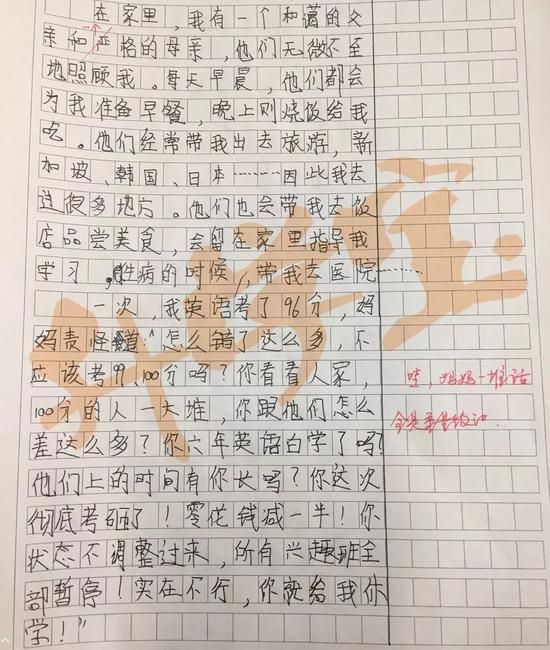 在家里，我有一个和蔼的父
亲和一严格的母亲，他们无微不至
地照顾我。每天早晨，他们都会
为我准备早餐，晚上则烧饭给我
吃。他们经常带我出去旅游，新
加坡、韩国、日本………因此我去
过很多地方。他们也会带我去饭
店品尝美食，会留在家里指导我
学习，生病的时候，带我去医院………
一次，我英语考了96分，妈
妈责怪道："怎么错了这么多，不
应该考99、100分吗？你看看人家，
100分的人一大堆，你跟他们怎么
差这么多？你六年英语白学了吗？
他们上的时间有你长吗？你这次
彻底考砸了！零花钱减一半！你
状态不调整过来，所有兴趣班全
部暂停！实在不行，你就给我休
学！"
哇，妈妈一堆话
全是
升学宝